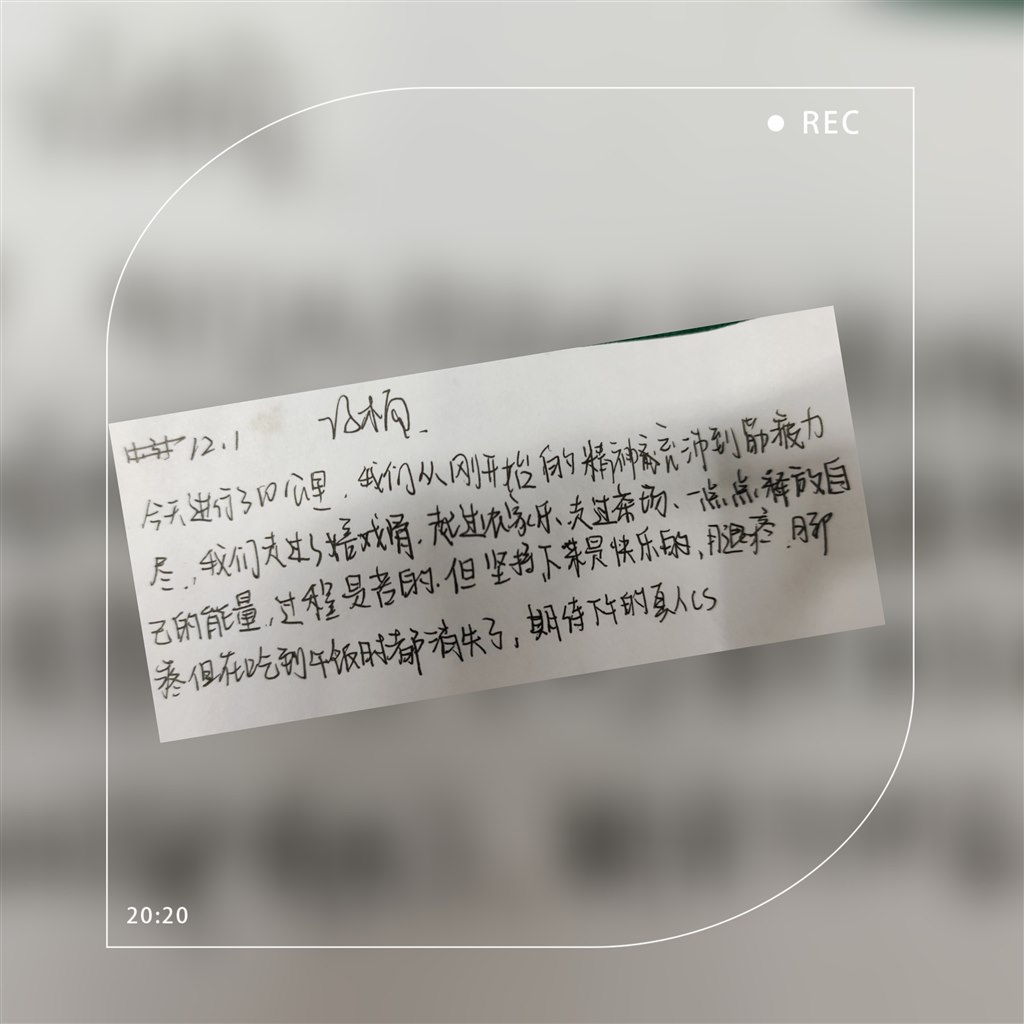 REC
12.1
今天进行了10公里,我们从刚开始的精神充沛到筋疲力
尽,我们走过了 越过农家乐、走过茶场、一点点释放自
己的能量,过程是苦的.但坚持下来是快乐的,腿疼.脚
疼但在吃到午饭时都消失了,期待下午的真人CS
20:20